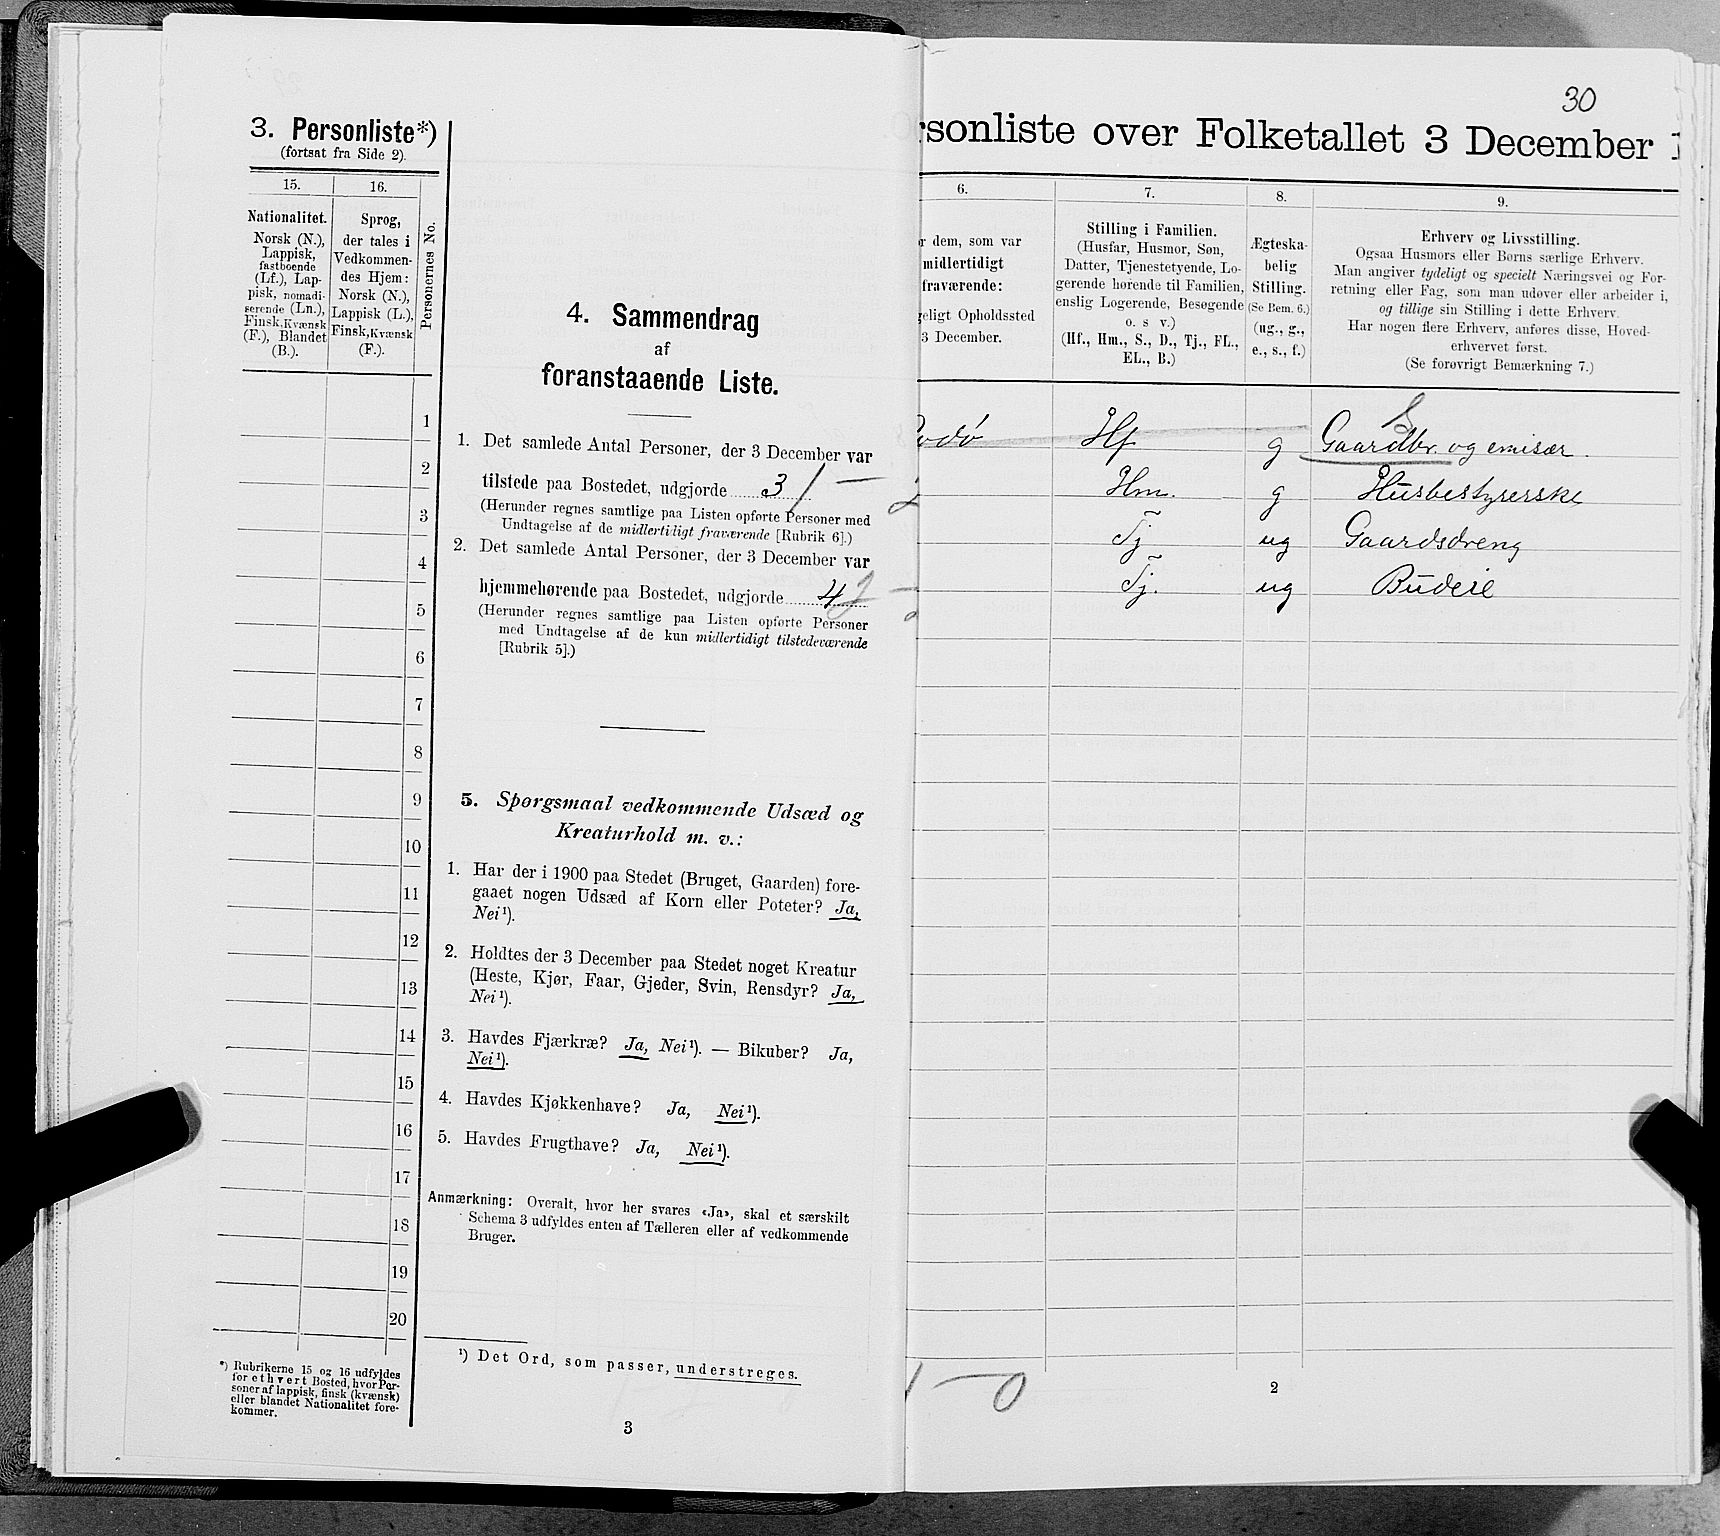 3. Personliste*)
(fortsat fra Side 2).
15.
16.
Personernes No.
Nationalitet.
Norsk (N.),
Lappisk,
fastboende
(Lf.), Lap-
pisk, nomadi-
serende (Ln.),
Finsk, Kvænsk
(F.), Blandet
(B.).
Sprog,
der tales i
Vedkommen-
des Hjem:
Norsk (N.),
Lappisk (L.),
Finsk, Kvænsk
(F.).
1
2
3
4
5
6
7
8
9
10
11
12
13
14
15
16
17
18
19
20
*) Rubrikerne 15 og 16 udfyldes
for ethvert Bosted, hvor Per-
soner af lappisk, finsk (kvænsk)
eller blandet Nationalitet fore-
kommer.
4. Sammendrag
af
foranstaaende Liste.
1. Det samlede Antal Personer, der 3 December var
tilstede paa Bostedet, udgjorde 3
(Herunder regnes samtlige paa Listen opførte Personer med
Undtagelse af de midlertidigt fraværende [Rubrik 6].)
2. Det samlede Antal Personer, der 3 December var
hjemmehørende paa Bostedet, udgjorde 4
(Herunder regnes samtlige paa Listen opførte Personer
med Undtagelse af de kun midlertidigt tilstedeværende
[Rubrik 5].)
5. Spørgsmaal vedkommende Udsæd og
Kreaturhold m. v.:
1. Har der i 1900 paa Stedet (Bruget, Gaarden) fore-
gaaet nogen Udsæd af Korn eller Poteter? Ja,
Nei¹).
2. Holdtes der 3 December paa Stedet noget Kreatur
(Heste, Kjør, Faar, Gjeder, Svin, Rensdyr? Ja,
Nei¹).
3. Havdes Fjærkræ? Ja, Nei¹). — Bikuber? Ja,
Nei¹).
4. Havdes Kjøkkenhave? Ja, Nei¹).
5. Havdes Frugthave? Ja, Nei¹).
Anmærkning: Overalt, hvor her svares «Ja», skal et særskilt
Schema 3 udfyldes enten af Tælleren eller af vedkommende
Bruger.
¹) Det Ord, som passer, understreges.
3
30
rsonliste over Folketallet 3 December 1
6.
r dem, som var
midlertidigt
fraværende:
geligt Opholdssted
3 December.
7.
Stilling i Familien.
(Husfar, Husmor, Søn,
Datter, Tjenestetyende, Lo-
gerende hørende til Familien,
enslig Logerende, Besøgende
o. s v.)
(Hf., Hm., S., D., Tj., FL.,
EL., B.)
8.
Ægteska-
belig
Stilling.
(Se Bem. 6.)
(ug., g.,
e., s., f.)
9.
Erhverv og Livsstilling.
Ogsaa Husmors eller Børns særlige Erhverv.
Man angiver tydeligt og specielt Næringsvei og For-
retning eller Fag, som man udøver eller arbeider i,
og tillige sin Stilling i dette Erhverv.
Har nogen flere Erhverv, anføres disse, Hoved-
erhvervet først.
(Se forøvrigt Bemærkning 7.)
odø Hf g Gaardbr. og emisær.
Hm. g Husbestyrerske
Tj ug Gaardsdreng
Tj. ug Budeie
— 0
2